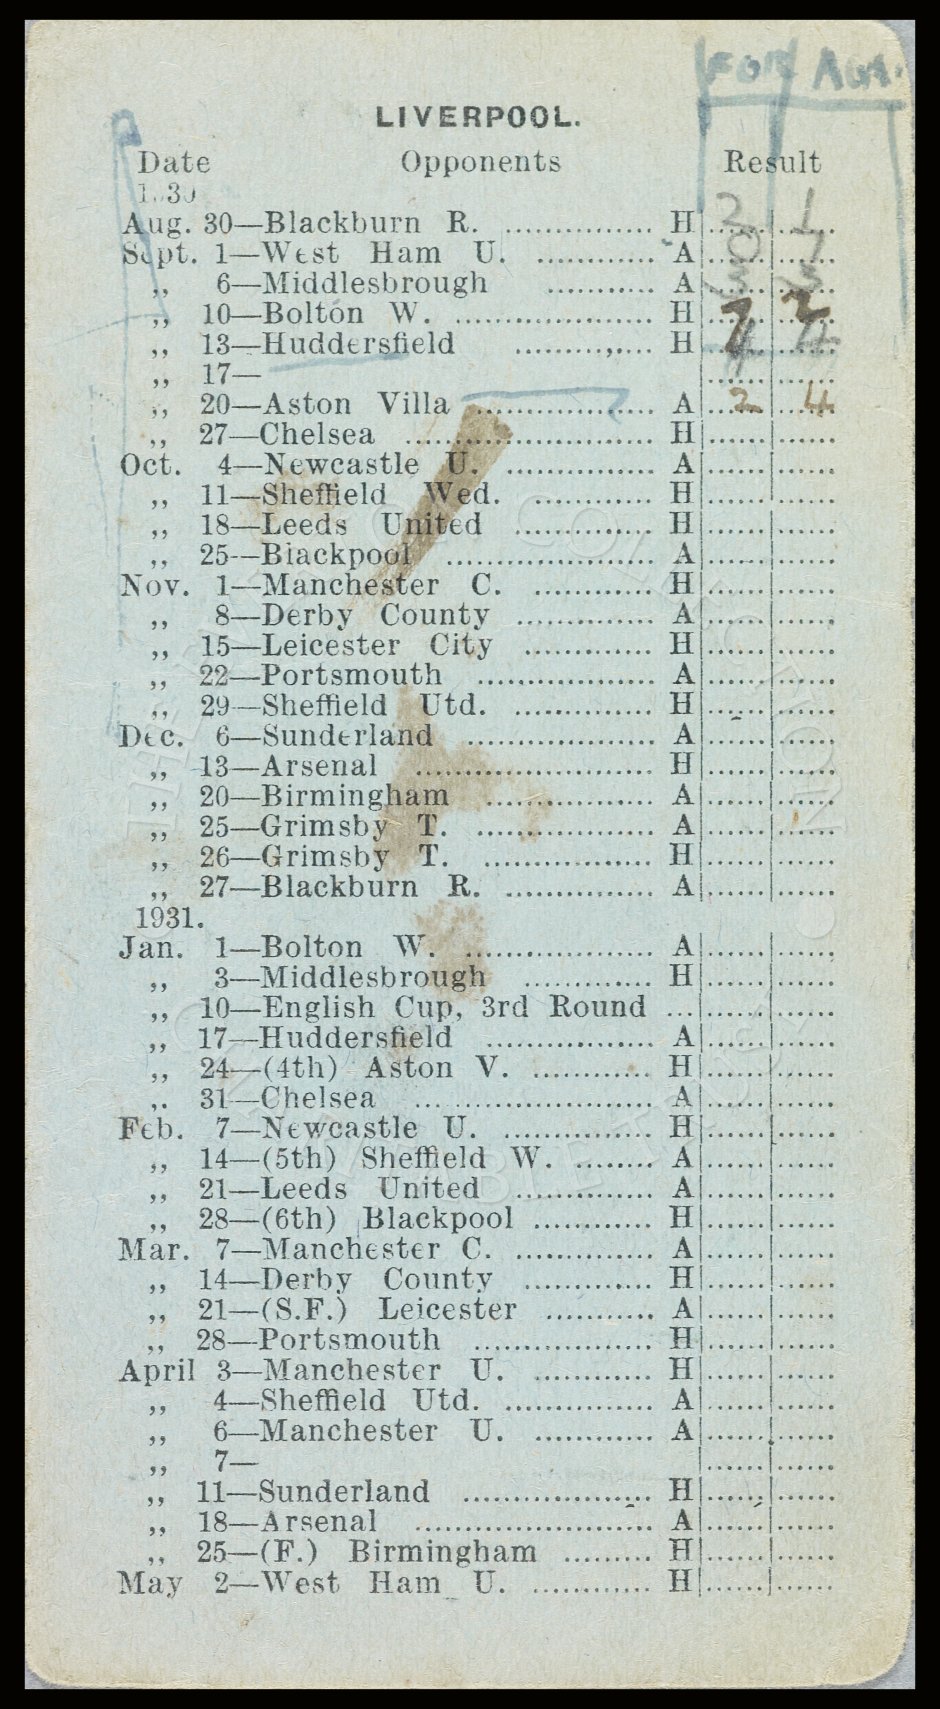 FOR AGA.
LIVERPOOL.
Date Opponents Result
1930
Aug. 30—Blackburn R. ............... H ...... ...... 2 1
Sept. 1—West Ham U. ............ A ...... ...... 0 7
,, 6—Middlesbrough ........... A ...... ...... 3 3
,, 10—Bolton W. ..................... H ...... ...... 7 2
,, 13—Huddersfield ......,.... H ...... ...... 4
,, 17— ...... ......
,, 20—Aston Villa ................... A ...... ...... 2 4
,, 27—Chelsea .......................... H ...... ......
Oct. 4—Newcastle U. ................ A ...... ......
,, 11—Sheffield Wed. ............. H ...... ......
,, 18—Leeds United ............... H ...... ......
,, 25—Blackpool ...................... A ...... ......
Nov. 1—Manchester C. ............. H ...... ......
,, 8—Derby County ............... A ...... ......
,, 15—Leicester City .............. H ...... ......
,, 22—Portsmouth ................... A ...... ......
,, 29—Sheffield Utd. ............... H ...... ......
Dec. 6—Sunderland .................... A ...... ......
,, 13—Arsenal .......................... H ...... ......
,, 20—Birmingham .................. A ...... ......
,, 25—Grimsby T. ................... A ...... ......
,, 26—Grimsby T. .................. H ...... ......
,, 27—Blackburn R. ................ A ...... ......
1931.
Jan. 1—Bolton W. .................... A ...... ......
,, 3—Middlesbrough .............. H ...... ......
,, 10—English Cup, 3rd Round ... ...... ......
,, 17—Huddersfield .................. A ...... ......
,, 24—(4th) Aston V. ............. H ...... ......
,, 31—Chelsea .......................... A ...... ......
Feb. 7—Newcastle U. ................ H ...... ......
,, 14—(5th) Sheffield W. ........ A ...... ......
,, 21—Leeds United ............... A ...... ......
,, 28—(6th) Blackpool ............. H ...... ......
Mar. 7—Manchester C. ............... A ...... ......
,, 14—Derby County .............. H ...... ......
,, 21—(S.F.) Leicester ............ A ...... ......
,, 28—Portsmouth ................... H ...... ......
April 3—Manchester U. ............. H ...... ......
,, 4—Sheffield Utd. ................ A ...... ......
,, 6—Manchester U. ............. A ...... ......
,, 7— ...... ......
,, 11—Sunderland .................... H ...... ......
,, 18—Arsenal .......................... A ...... ......
,, 25—(F.) Birmingham .......... H ...... ......
May 2—West Ham U. ............. H ...... ......